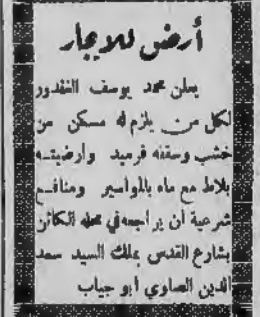 أرض للايجار
يعلن محمد يوسف الغندور
لكل من يلزم له مسكن من
خشب وسقفه قرميد وارضيته
بلاط مع ماه بالمواسير ومنافع
شرعية أن يراجعه في محله الكائن
بشارع القدس بملك السيد سعد
الدين الصاوي أبو جياب